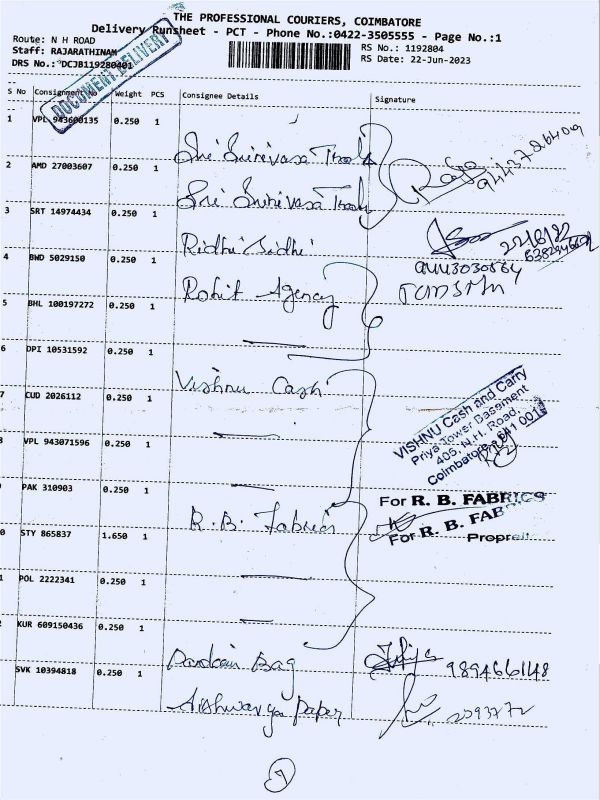 THE PROFESSIONAL COURIERS, COIMBATORE
Delivery Runsheet - PCT - Phone No.:0422-3505555 - Page No.:1
Route: N H ROAD
Staff: RAJARATHINAM
DRS No.: DCJB119280401
RS No.: 1192804
RS Date: 22-Jun-2023
DOCUMENT DELIVERY
S No Consignment No Weight PCS Consignee Details Signature
1 VPL 943600135 0.250 1 Sri Srinivasa Trade
2 AMD 27003607 0.250 1 Sri Srinivasa Trade
9443726409
3 SRT 14974434 0.250 1 Ridhi Sidhi
22/6/23
4 BWD 5029150 0.250 1 Rohit Agency
5 BHL 100197272 0.250 1
6 DPI 10531592 0.250 1 Vishnu Cash
7 CUD 2026112 0.250 1
VISHNU Cash and Carry
Priya Tower Basement
405, N.H. Road,
Coimbatore - 641 001
8 VPL 943071596 0.250 1
9 PAK 310903 0.250 1 R.B. Fabrics
For R. B. FABRICS
For R. B. FAB
Propr
0 STY 865837 1.650 1
1 POL 2222341 0.250 1
2 KUR 609150436 0.250 1 Bag
9894666148
SVK 10394818 0.250 1 Aishwarya paper
2393772